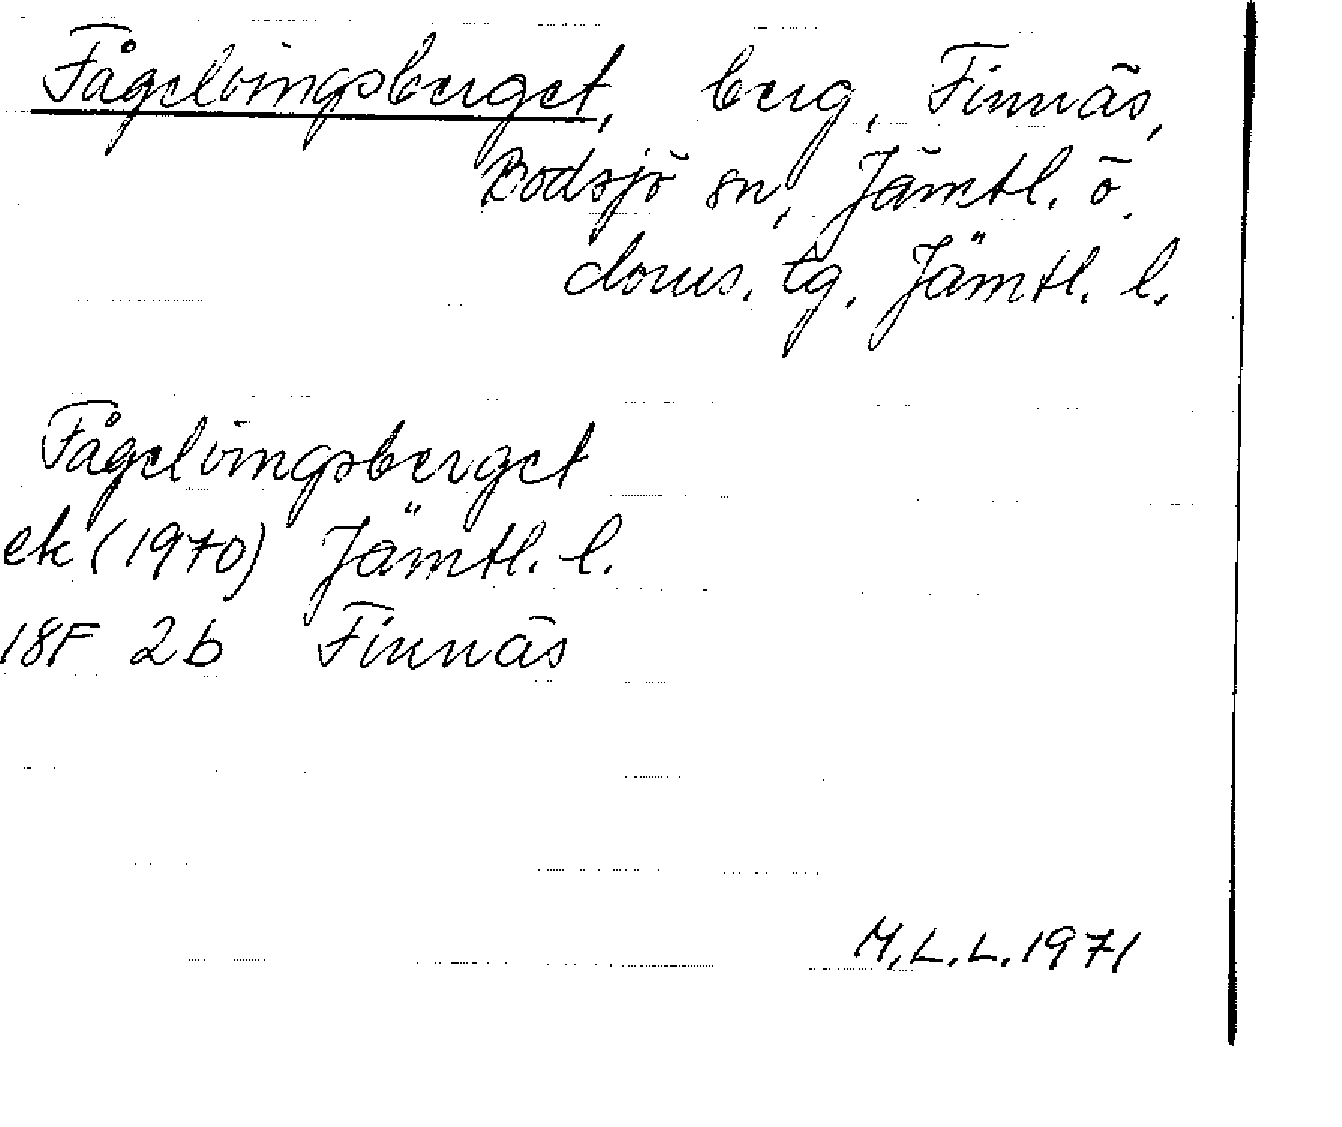 Fågelvingsberget, berg, Finnäs,
Bodsjö sn, Jämtl. ö.
doms. tg. Jämtl. l.
Fågelvingsberget
ek (1970) Jämtl. l.
18F 2b Finnäs
M.L.L. 1971